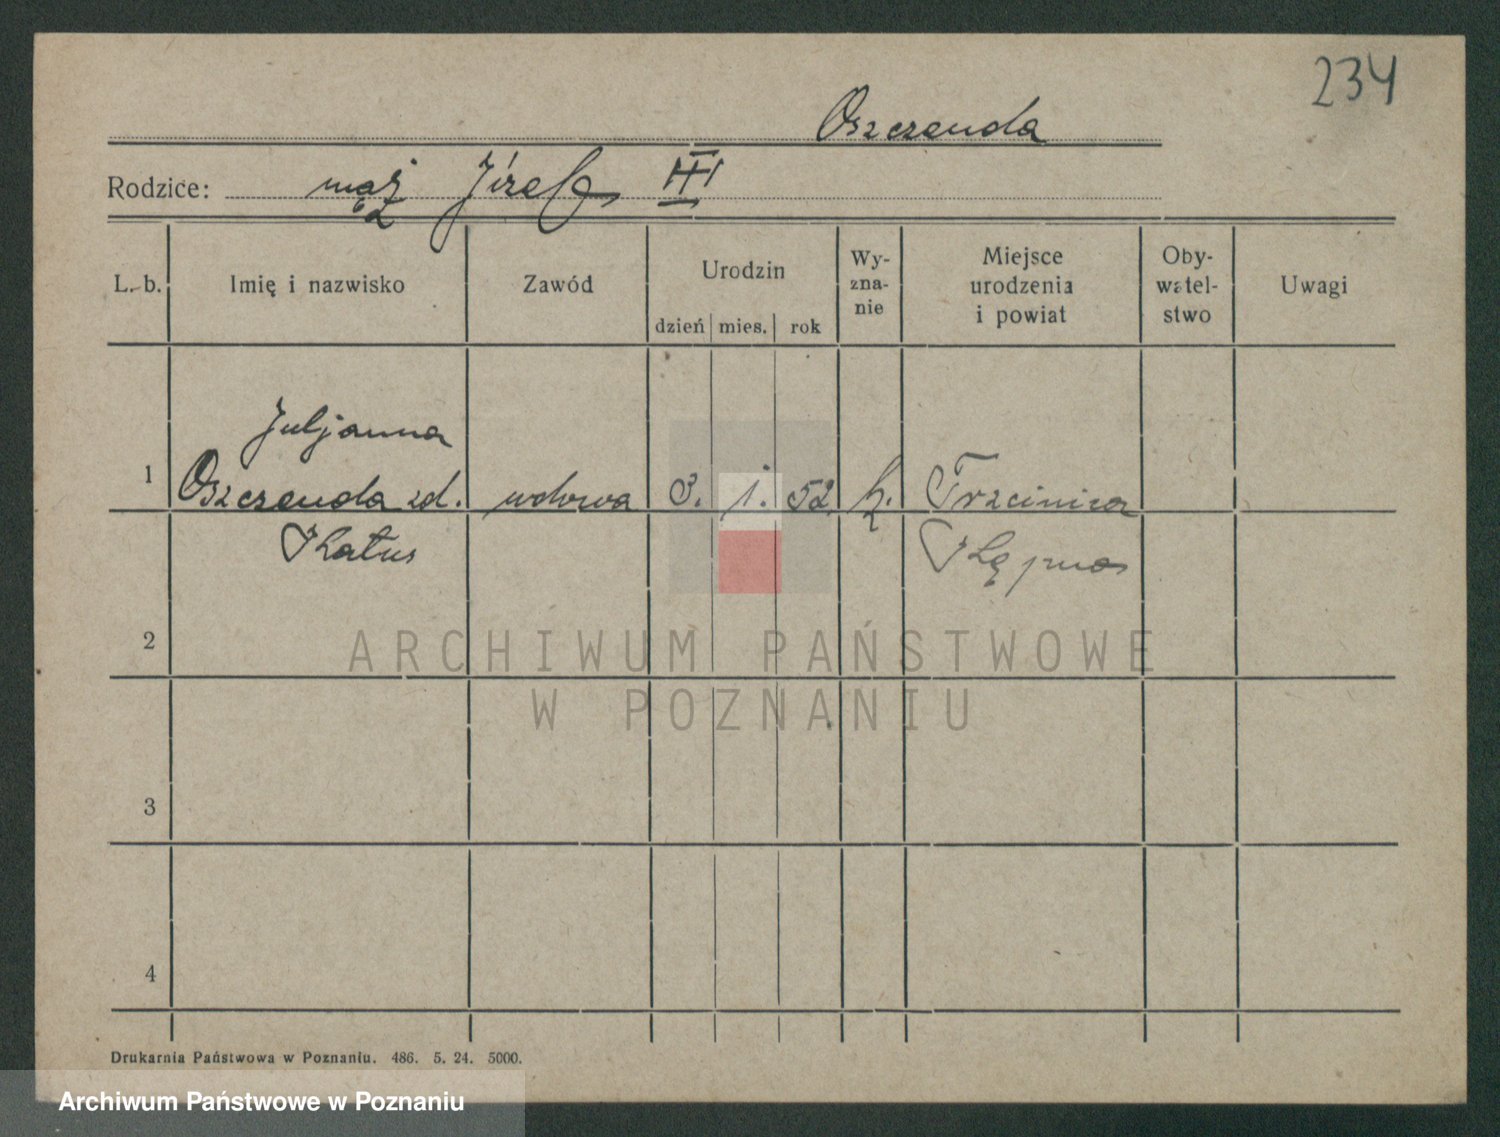 234
Oszczenda
Rodzice: mąż Józef III
L. b. Imię i nazwisko Zawód Urodzin dzień mies. rok Wy-znanie Miejsce urodzenia i powiat Oby-watel-stwo Uwagi
Juljanna
1 Oszczenda zd. wdowa 3. 1. 52 k. Trzcinica
Kłatus Kępno
2
ARCHIWUM PAŃSTWOWE
W POZNANIU
3
4
Drukarnia Państwowa w Poznaniu. 486. 5. 24. 5000.
Archiwum Państwowe w Poznaniu